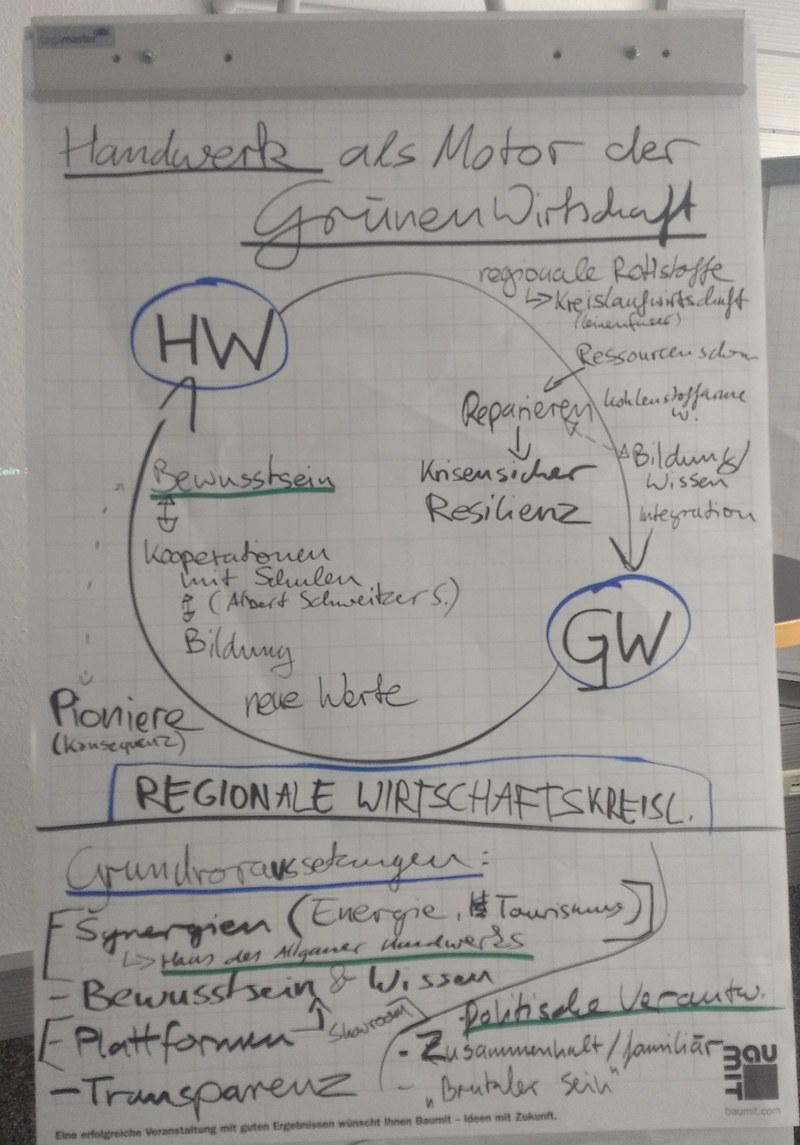 Handwerk als Motor der
Grünen Wirtschaft
regionale Rohstoffe
↳ Kreislaufwirtschaft
HW
Ressourcen schon
Reparieren
kohlenstoffarme
W.
Bildung/
Wissen
Krisensicher
Resilienz
Integration
Bewusstsein
Kooperationen
mit Schulen
(Albert Schweitzer S.)
Bildung
GW
neue Werte
Pioniere
(Konsequenz)
REGIONALE WIRTSCHAFTSKREISL.
Grundvoraussetzungen:
Synergien (Energie, Tourismus)
↳ Haus des Allgäuer Handwerks
- Bewusstsein & Wissen
Plattformen
Showroom
- Transparenz
politische Verantw.
- Zusammenhalt/familiär
- „Brutaler sein"
BAUMIT
baumit.com
Eine erfolgreiche Veranstaltung mit guten Ergebnissen wünscht Ihnen Baumit – Ideen mit Zukunft.